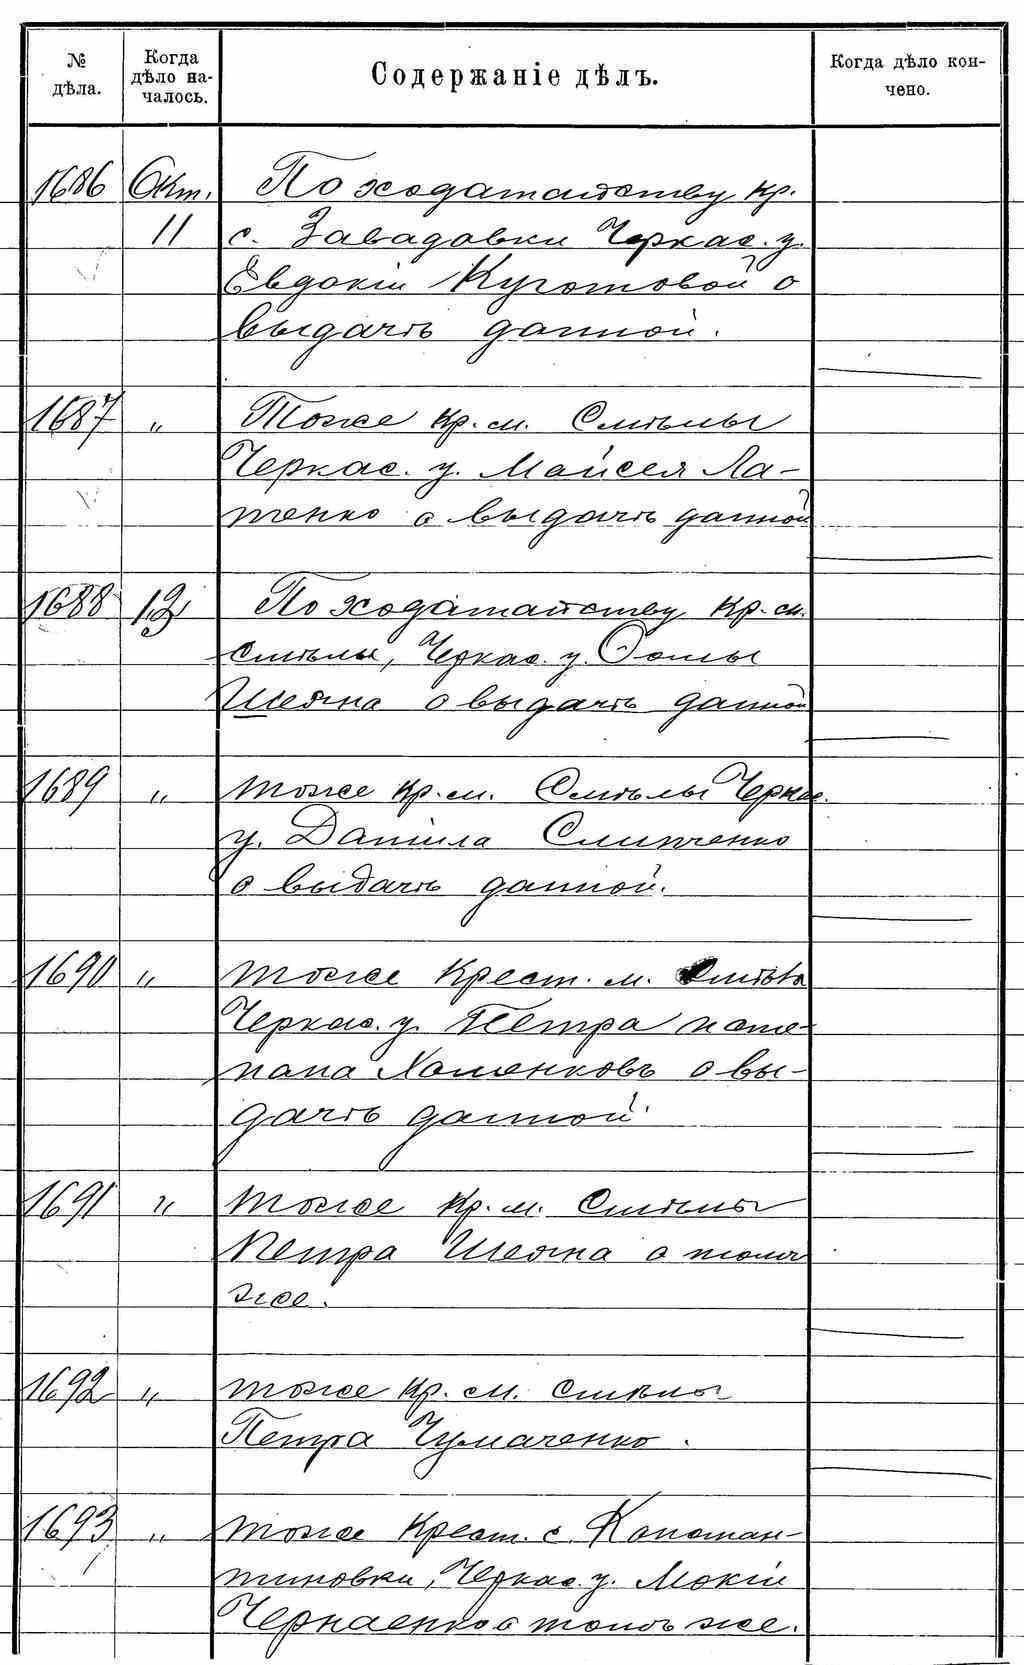 № дѣла.
Когда дѣло на-
чалось.
Содержаніе дѣлъ.
Когда дѣло кон-
чено.
1686 Окт. По ходатайству кр.
11 с. Завадовки Черкас. у.
Евдокіи
выдачѣ данной.
1687 „ Тоже кр. м. Смѣлы
Черкас. у. Мойсея Ла-
тенко о выдачѣ данной
1688 13 По ходатайству кр. м.
Смѣлы, Черкас. у. Ѳомы
о выдачѣ данной
1689 „ тоже кр. м. Смѣлы Черкас.
у. Даніила Слипченко
о выдачѣ данной.
1690 „ тоже Крест. м. Смѣлы
Черкас. у. Петра и Сте-
пана Хоменковъ о вы-
дачѣ данной.
1691 „ тоже кр. м. Смѣлы
Петра о томъ
же.
1692 „ тоже кр. м. Смѣлы
Петра Чумаченко.
1693 „ тоже Крест. с. Констан-
тиновки, Черкас. у. Мокія
о томъ же.